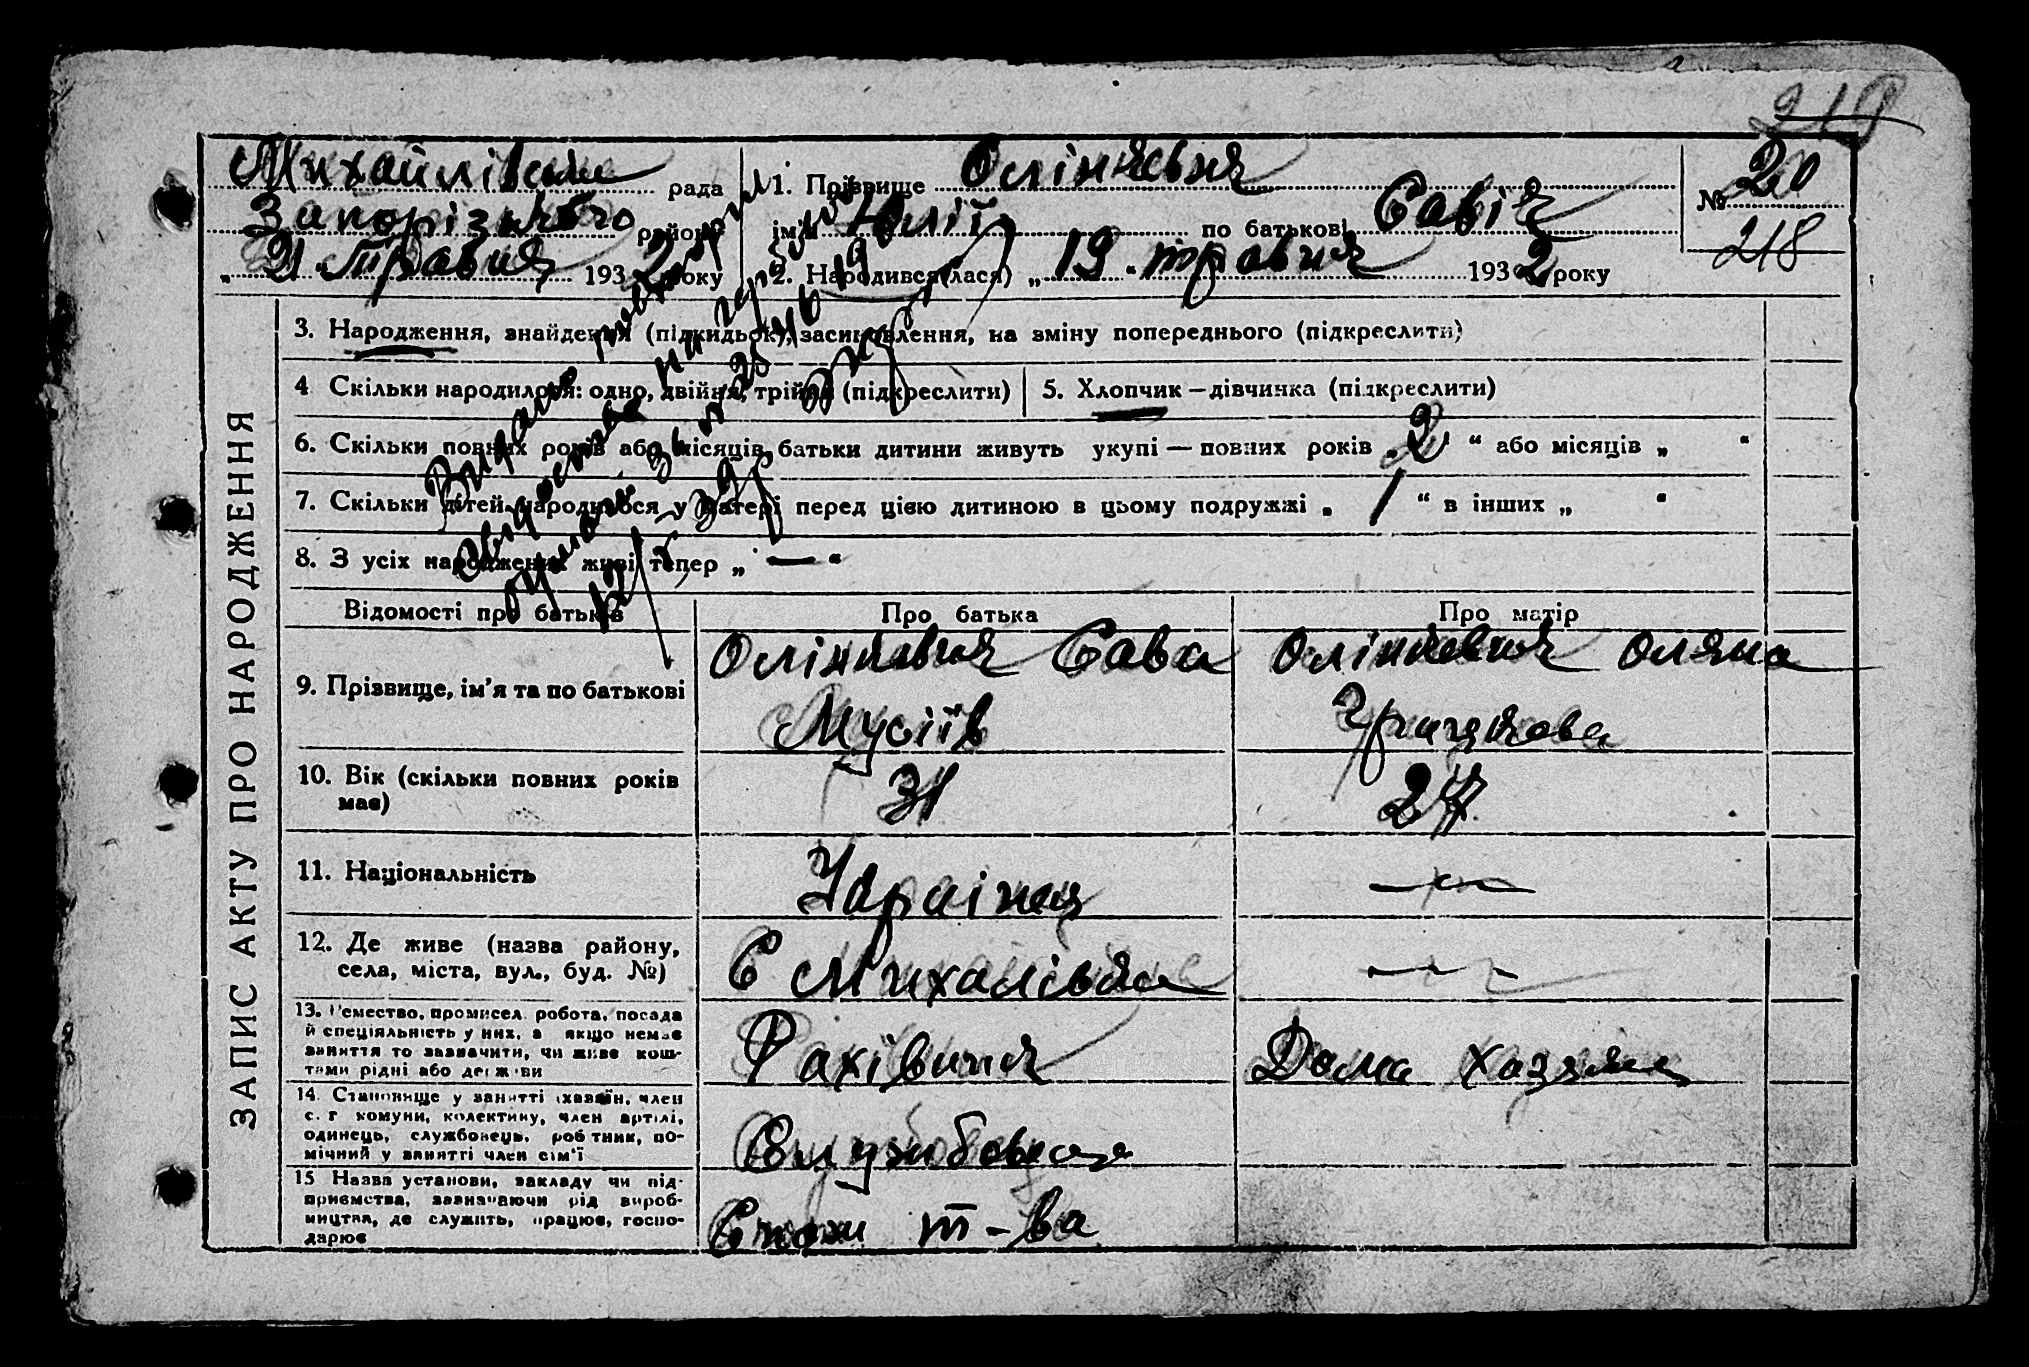 219
Михайлівська рада
Запорізького району
„ 21 “ травня 1932 року
1. Прізвище
ім'я Юлій по батькові Савіч
2. Народився(лася) „ 19 “ травня 1932 року
№ 20
218
3. Народження, знайдення (підкидьок), засиновлення, на зміну попереднього (підкреслити)
4 Скільки народилося: одно, двійня, трійня (підкреслити)
5. Хлопчик — дівчинка (підкреслити)
6. Скільки повних років або місяців батьки дитини живуть укупі — повних років „ 2 “ або місяців „ “
7. Скільки дітей народилося у матері перед цією дитиною в цьому подружжі „ 1 “ в інших „ “
8. З усіх народжених живі тепер „ — “
Відомості про батьків
Про батька
Про матір
9. Прізвище, ім'я та по батькові
Сава
Мусіїв
Оляна
10. Вік (скільки повних років має)
31
27
11. Національність
Українец
—"—
12. Де живе (назва району, села, міста, вул., буд. №)
С Михалівка
—"—
13. Ремество, промисел, робота, посада
й спеціяльність у них, а якщо немає
заняття то зазначити, чи живе кош-
тами рідні або держави
Фахівиця
Дома хазяйка
14. Становище у занятті (хазяїн, член
с. г комуни, колективу, член артілі,
одинець, службовець, робітник, по-
мічний у занятті член сім'ї
Службовець
15 Назва установи, закладу чи під-
приємства, зазначаючи рід вироб-
ництва, де служить, працює, госпо-
дарює
Спожи т-ва
ЗАПИС АКТУ ПРО НАРОДЖЕННЯ